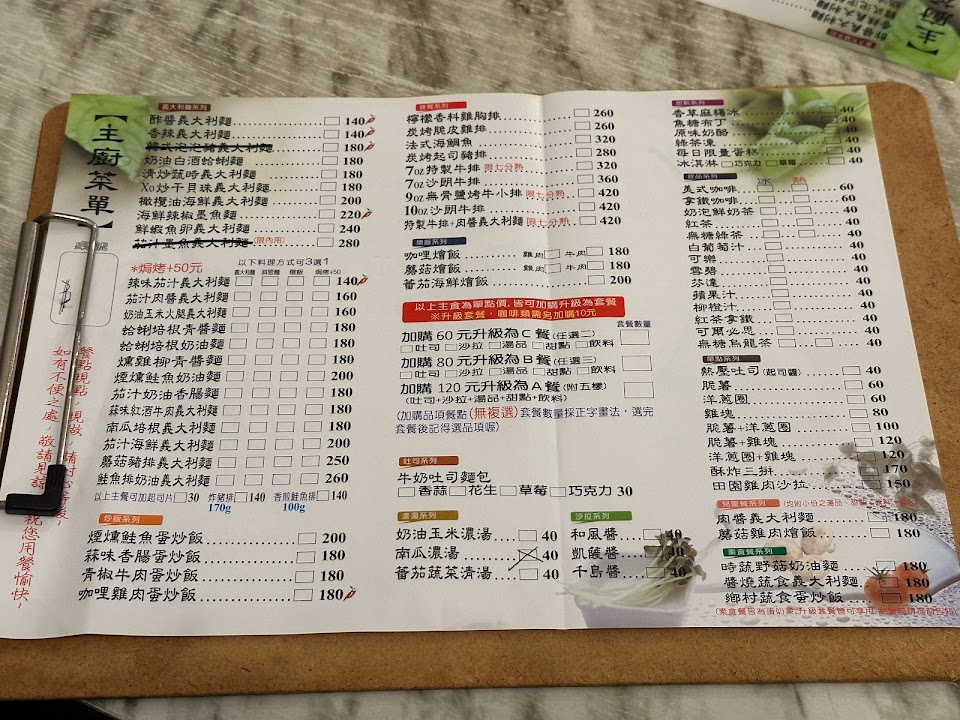 【主廚菜單】
義大利麵系列
酢醬義大利麵 140
香辣義大利麵 140
韓式泡泡豬義大利麵 180
奶油白酒蛤蜊麵 180
清炒蔬時義大利麵 180
Xo炒干貝珠義大利麵 180
橄欖油海鮮義大利麵 200
海鮮辣椒墨魚麵 220
鮮蝦魚卵義大利麵 240
茄汁墨魚義大利麵(限內用) 280
*焗烤+50元
以下料理方式可3選1
義大利麵 燉飯 焗烤+50
辣味茄汁義大利麵 140
茄汁肉醬義大利麵 160
奶油玉米火腿義大利麵 160
蛤蜊培根青醬麵 180
蛤蜊培根奶油麵 180
燻雞柳青醬麵 180
煙燻鮭魚奶油麵 200
茄汁奶油香腸麵 180
蒜味紅酒牛肉義大利麵 180
南瓜培根義大利麵 180
茄汁海鮮義大利麵 200
蘑菇豬排義大利麵 250
鮭魚排奶油義大利麵 260
以上主餐可加起司片 30 炸豬排 140 香煎鮭魚排 140
170g 100g
炒飯系列
煙燻鮭魚蛋炒飯 200
蒜味香腸蛋炒飯 180
青椒牛肉蛋炒飯 180
咖哩雞肉蛋炒飯 180
餐點現點，現做，請耐心等後，
如有不便之處，敬請見諒
祝您用餐愉快，
排餐系列
檸檬香料雞胸排 260
炭烤脆皮雞排 260
法式海鯛魚 320
炭烤起司豬排 280
7oz特製牛排 限七分熟 320
7oz沙朗牛排 360
9oz無骨鹽烤牛小排 限七分熟 420
10oz沙朗牛排 420
特製牛排+肉醬義大利麵 限七分熟 420
燴飯系列
咖哩燴飯 雞肉 牛肉 180
蘑菇燴飯 雞肉 牛肉 180
蕃茄海鮮燴飯 200
以上主食為單點價,皆可加購升級為套餐
※升級套餐，咖哩類需另加購10元
套餐數量
加購 60 元升級為 C 餐 (任選二)
吐司 沙拉 湯品 甜點 飲料
加購 80 元升級為 B 餐 (任選三)
吐司 沙拉 湯品 甜點 飲料
加購 120 元升級為 A 餐 (附五樣)
(吐司+沙拉+湯品+甜點+飲料)
(加購品項餐點(無複選)套餐數量採正字畫法，選完
套餐後記得選品項喔)
吐司系列
牛奶吐司麵包
香蒜 花生 草莓 巧克力 30
濃湯系列
奶油玉米濃湯 40
南瓜濃湯 40
蕃茄蔬菜清湯 40
沙拉系列
和風醬 40
凱薩醬 40
千島醬 40
甜點系列
香草麻糬冰 40
焦糖布丁 40
原味奶酪 40
綠茶凍 40
每日限量蛋糕 40
冰淇淋 巧克力 草莓 40
飲品系列 冰 熱
美式咖啡 60
拿鐵咖啡 60
奶泡鮮奶茶 40
紅茶 40
無糖綠茶 40
白葡萄汁 40
可樂 40
雪碧 40
芬達 40
蘋果汁 40
柳橙汁 40
紅茶拿鐵 40
可爾必思 40
無糖烏龍茶 40
單點系列
熱壓吐司(起司醬) 40
脆薯 60
洋蔥圈 60
雞塊 80
脆薯+洋蔥圈 100
脆薯+雞塊 120
洋蔥圈+雞塊 120
酥炸三拼 170
田園雞肉沙拉 150
兒童餐系列
肉醬義大利麵 180
蘑菇雞肉燴飯 180
素食餐系列
時蔬野菇奶油麵 180
醬燒蔬食義大利麵 180
鄉村蔬食蛋炒飯 180